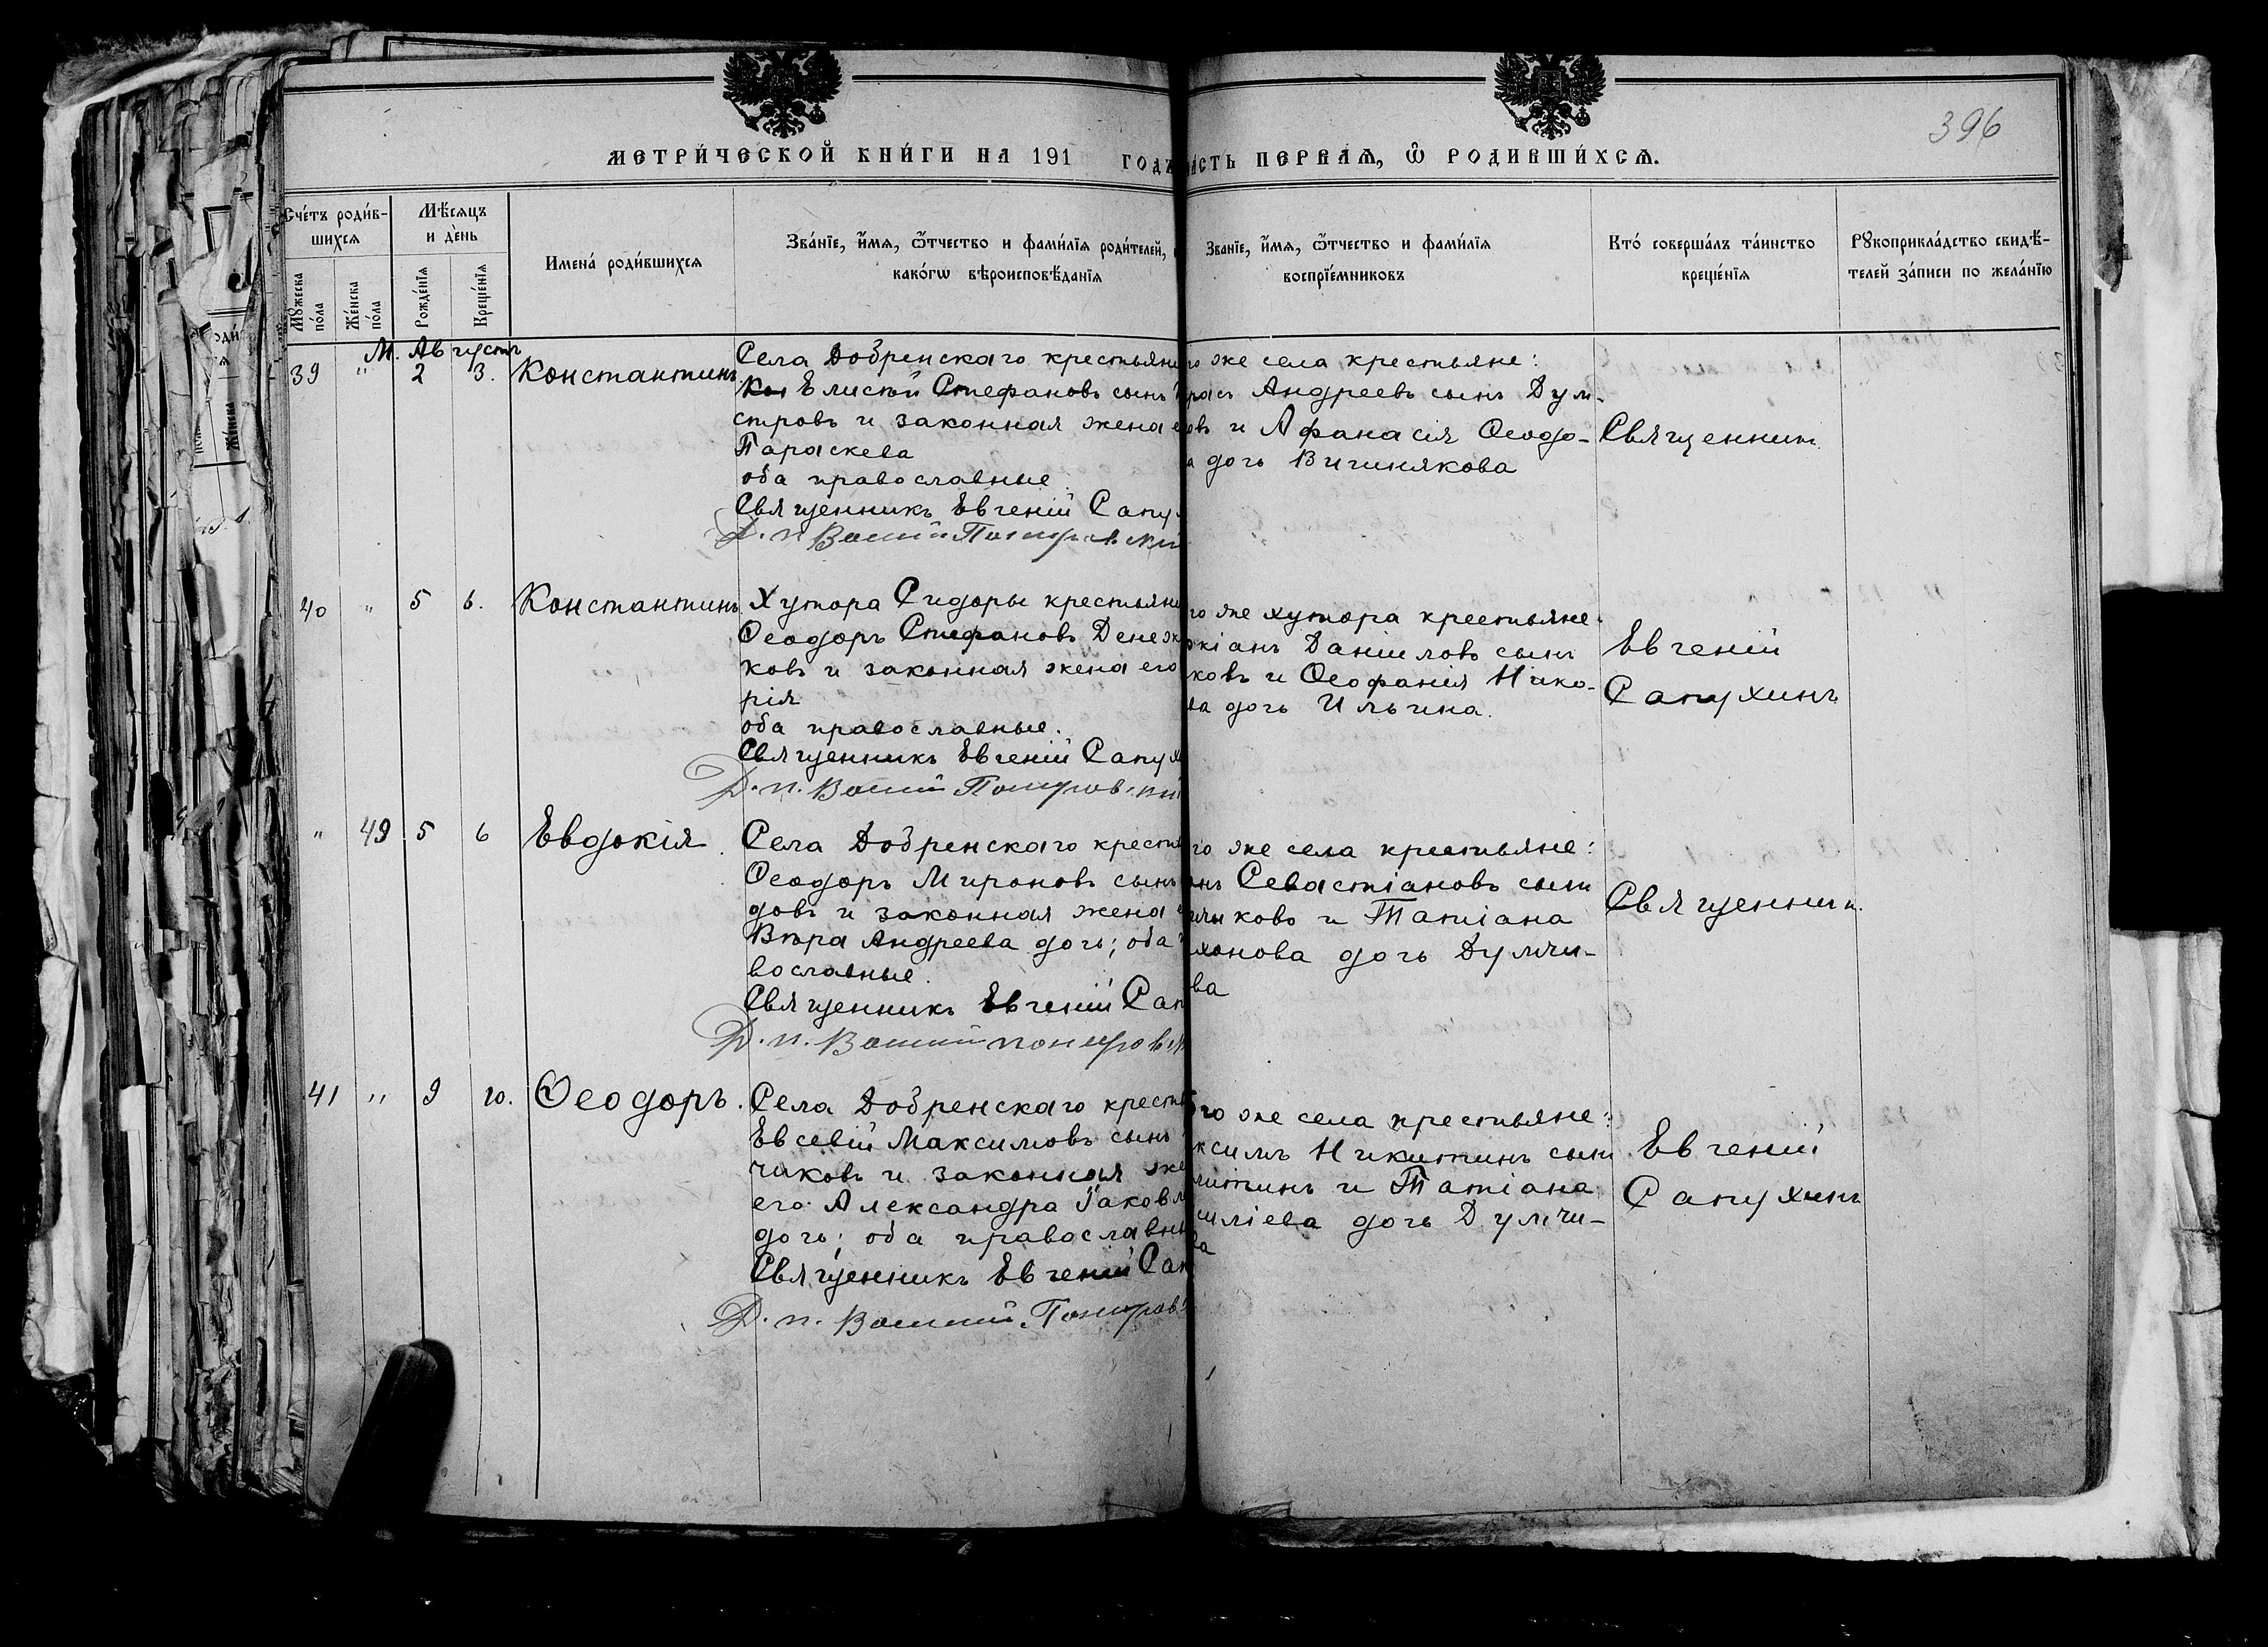 396
МЕТРИ́ЧЕСКОЙ КНИ́ГИ НА 191 ГОДЪ
ЧАСТЬ ПЕРВАѦ, Ѡ РОДИВШИ́ХСѦ.
Сче́тъ роди́в-
шихсѧ
Мꙋжеска
по́ла
Же́нска
по́ла
Мѣ́сѧцъ
и де́нь
Рожде́нїѧ
Креще́нїѧ
Имена́ роди́вшихсѧ
Зва́нїе, и́мѧ, ѿтчество и фами́лїѧ роди́телей,
како́гѡ вѣроисповѣ́данїѧ
Зва́нїе, и́мѧ, ѿтчество и фами́лїѧ
воспрїе́мниковъ
Кто́ соверша́лъ та́инство
креще́нїѧ
Рꙋкоприкла́дство свидѣ́-
телей за́писи по жела́нїю
М. Августъ
39 " 2 3. Константинъ
Села Добренскаго крестьяни
Елисѣй Стефановъ сынъ
стровъ и законная жена
Параскева
оба православные.
Священникъ Евгеній Сапу
Д. п.
го же села крестьяне:
Андреевъ сынъ Дум-
овъ и Афанасія Ѳеодо-
а дочь Вичинякова
Священник
40 " 5 6. Константинъ
Хутора Сидоры крестьяни
Ѳеодоръ Стефановъ Денеж
ковъ и законная жена его
рія
оба православные.
Священникъ Евгеній Сапух
Д. п.
го же хутора крестьяне:
кіанъ Даниловъ сынъ
ковъ и Ѳеофанія Нико-
ва дочь Ильина.
Евгеній
Сапухинъ
" 49 5 6 Евдокія.
Села Добренскаго крестья
Ѳеодоръ Мироновъ сынъ
довъ и законная жена
Вѣра Андреева дочь; оба
вославные.
Священникъ Евгеній Сап
Д. п.
го же села крестьяне:
Севастіановъ сынъ
ковъ и Татіана
донова дочь Думчи-
ва
Священник.
41 " 9 10. Ѳеодоръ.
Села Добренскаго кресть
Евсевій Максимовъ сынъ
чиковъ и законная же
его Александра Іаковл
дочь; оба православны
Священникъ Евгеній Сап
Д. п.
го же села крестьяне:
ксимъ Никитинъ сынъ
и Татіана
силіева дочь Думчи-
ва
Евгеній
Сапухинъ